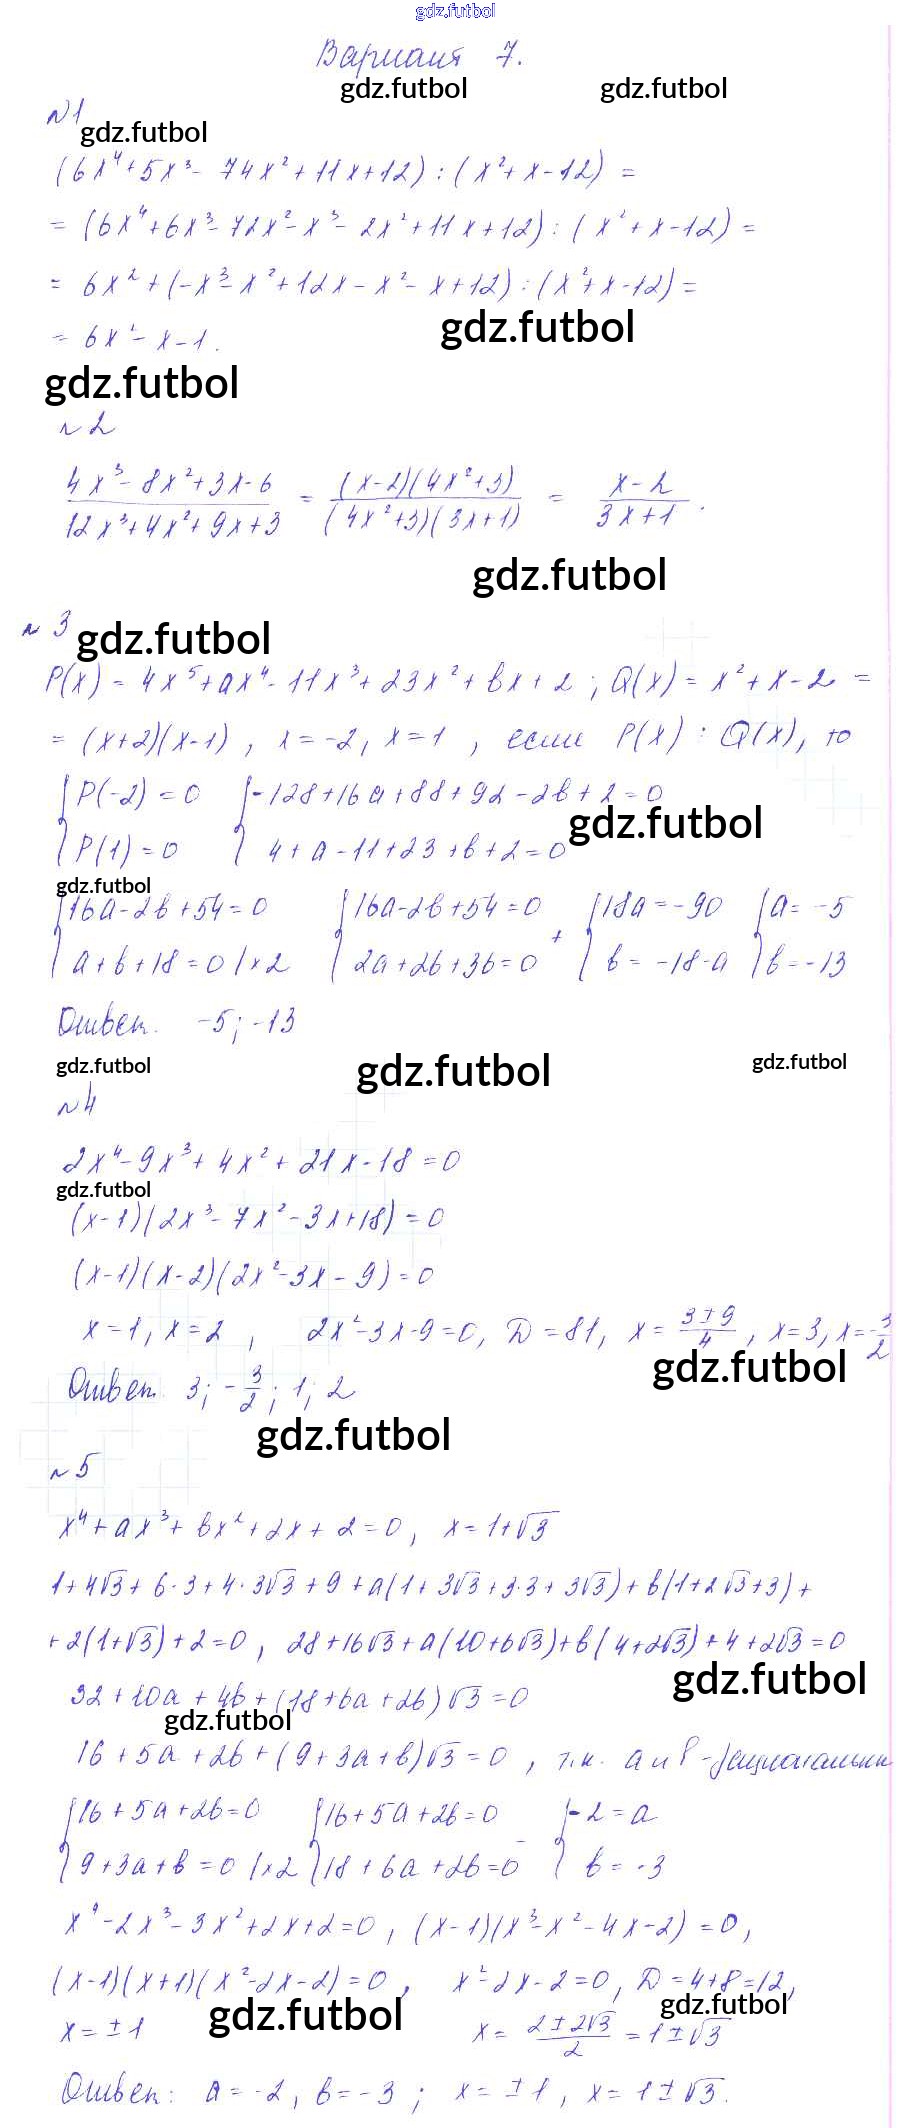 gdz.futbol
Вариант 7.
gdz.futbol gdz.futbol
№1
gdz.futbol
(6x⁴+5x³-74x²+11x+12):(x²+x-12)=
=(6x⁴+6x³-72x²-x³-2x²+11x+12):(x²+x-12)=
=6x²+(-x³-x²+12x-x²-x+12):(x²+x-12)=
gdz.futbol
=6x²-x-1.
gdz.futbol
№2
(4x³-8x²+3x-6)/(12x³+4x²+9x+3) = ((x-2)(4x²+3))/((4x²+3)(3x+1)) = (x-2)/(3x+1).
gdz.futbol
№3
gdz.futbol
P(x)=4x⁵+ax⁴-11x³+23x²+bx+2; Q(x)=x²+x-2=
=(x+2)(x-1), x=-2, x=1, если P(x):Q(x), то
{P(-2)=0 {-128+16a+88+92-2b+2=0
gdz.futbol
{P(1)=0 { 4+a-11+23+b+2=0
gdz.futbol
{16a-2b+54=0 {16a-2b+54=0 {18a=-90 {a=-5
{a+b+18=0 |×2 {2a+2b+36=0 + {b=-18-a {b=-13
Ответ: -5; -13
gdz.futbol gdz.futbol gdz.futbol
№4
2x⁴-9x³+4x²+21x-18=0
gdz.futbol
(x-1)(2x³-7x²-3x+18)=0
(x-1)(x-2)(2x²-3x-9)=0
x=1, x=2, 2x²-3x-9=0, D=81, x=(3±9)/4, x=3, x=-3/2
gdz.futbol
Ответ: 3; -3/2; 1; 2
gdz.futbol
№5
x⁴+ax³+bx²+2x+2=0, x=1+√3
1+4√3+6·3+4·3√3+9+a(1+3√3+3·3+3√3)+b(1+2√3+3)+
+2(1+√3)+2=0, 28+16√3+a(10+6√3)+b(4+2√3)+4+2√3=0
gdz.futbol
32+10a+4b+(18+6a+2b)√3=0
gdz.futbol
16+5a+2b+(9+3a+b)√3=0, т.к. a и b -рациональны
{16+5a+2b=0 {16+5a+2b=0 {-2=a
{9+3a+b=0 |×2 {18+6a+2b=0 - {b=-3
x⁴-2x³-3x²+2x+2=0, (x-1)(x³-x²-4x-2)=0,
(x-1)(x+1)(x²-2x-2)=0, x²-2x-2=0, D=4+8=12,
gdz.futbol gdz.futbol
x=±1 x=(2±2√3)/2=1±√3
Ответ: a=-2, b=-3; x=±1, x=1±√3.